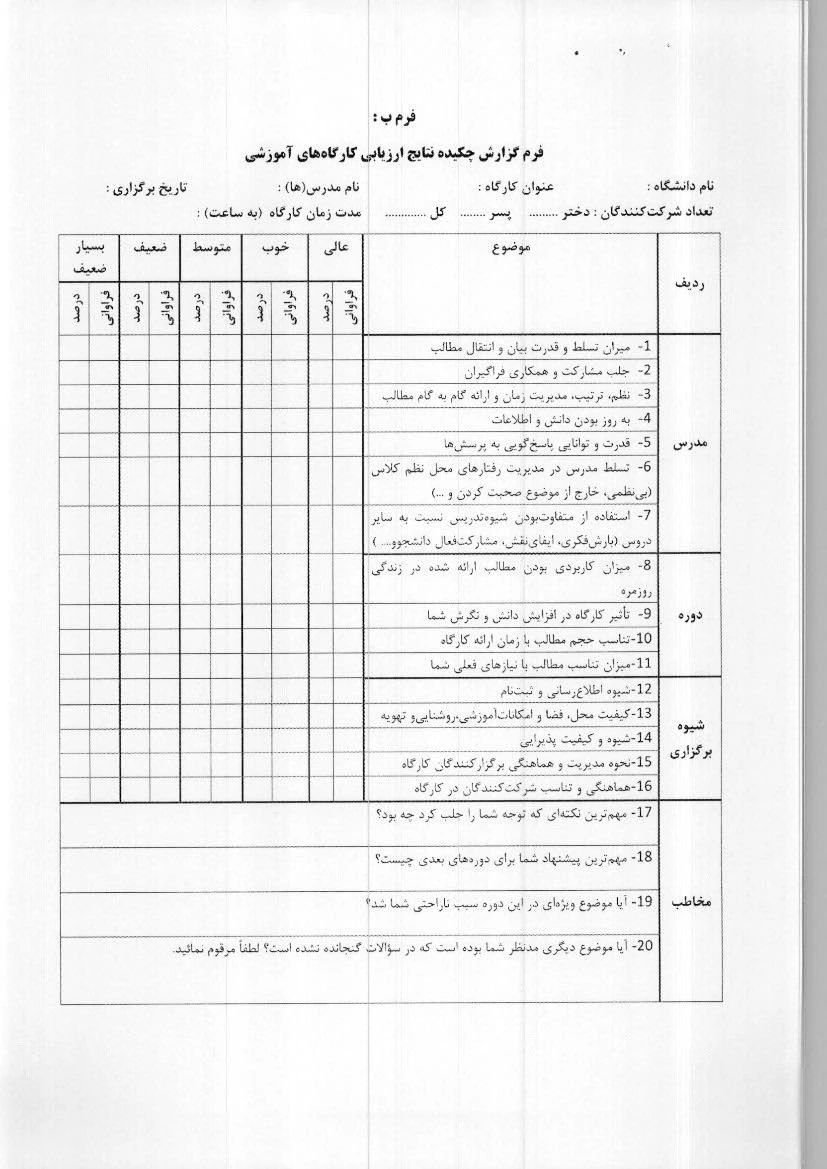 فرم ب :
فرم گزارش چکیده نتایج ارزیابی کارگاه‌های آموزشی
نام دانشگاه : عنوان کارگاه : نام مدرس(ها) : تاریخ برگزاری :
تعداد شرکت‌کنندگان : دختر ......... پسر ........ کل ............. مدت زمان کارگاه (به ساعت) :
ردیف موضوع عالی خوب متوسط ضعیف بسیار
ضعیف
فراوانی درصد فراوانی درصد فراوانی درصد فراوانی درصد فراوانی درصد
مدرس
1- میران تسلط و قدرت بیان و انتقال مطالب
2- جلب مشارکت و همکاری فراگیران
3- نظم، ترتیب، مدیریت زمان و ارائه گام به گام مطالب
4- به روز بودن دانش و اطلاعات
5- قدرت و توانایی پاسخ‌گویی به پرسش‌ها
6- تسلط مدرس در مدیریت رفتارهای محل نظم کلاس
(بی‌نظمی، خارج از موضوع صحبت کردن و ...)
7- استفاده از متفاوت‌بودن شیوه‌تدریس نسبت به سایر
دروس (بارش‌فکری، ایفای‌نقش، مشارکت‌فعال دانشجوو.... )
دوره
8- میزان کاربردی بودن مطالب ارائه شده در زندگی
روزمره
9- تأثیر کارگاه در افزایش دانش و نگرش شما
10-تناسب حجم مطالب با زمان ارائه کارگاه
11-میزان تناسب مطالب با نیازهای فعلی شما
شیوه
برگزاری
12-شیوه اطلاع‌رسانی و ثبت‌نام
13-کیفیت محل، فضا و امکانات‌آموزشی،روشنایی‌و تهویه
14-شیوه و کیفیت پذیرایی
15-نحوه مدیریت و هماهنگی برگزارکنندگان کارگاه
16-هماهنگی و تناسب شرکت‌کنندگان در کارگاه
مخاطب
17- مهم‌ترین نکته‌ای که توجه شما را جلب کرد چه بود؟
18- مهم‌ترین پیشنهاد شما برای دوره‌های بعدی چیست؟
19- آیا موضوع ویژه‌ای در این دوره سبب ناراحتی شما شد؟
20- آیا موضوع دیگری مدنظر شما بوده است که در سؤالات گنجانده نشده است؟ لطفاً مرقوم نمائید.